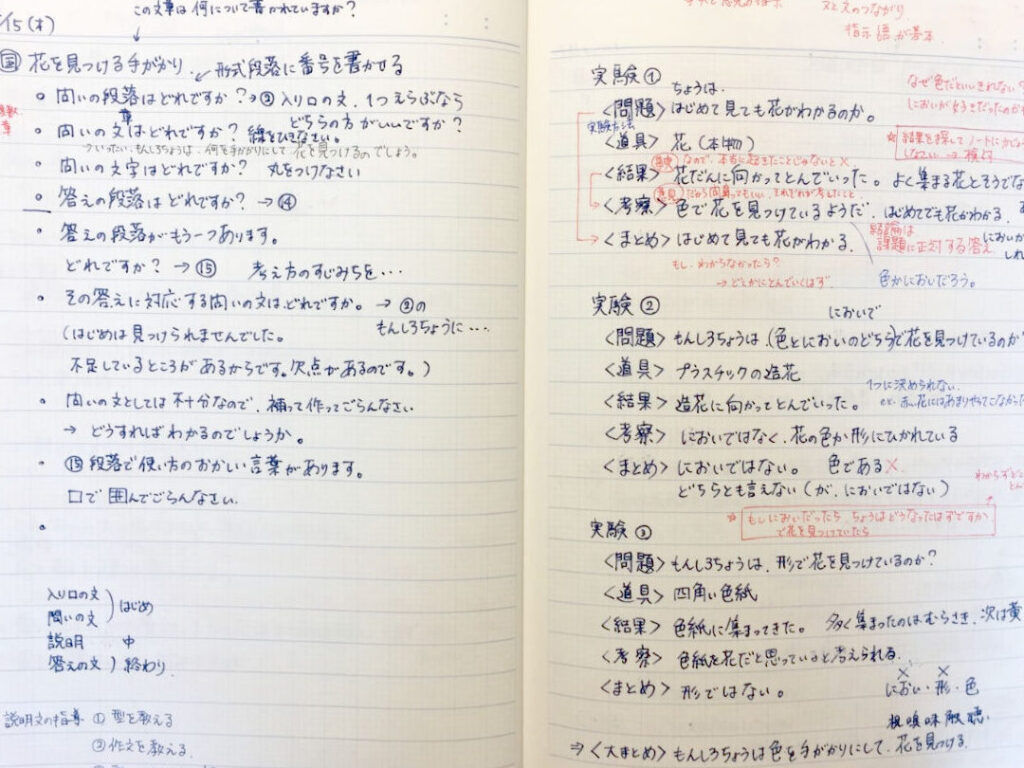 この文章は何について書かれていますか?
/15(木)
国 花を見つける手がかり
形式段落に番号を書かせる
○ 問いの段落はどれですか? → ② 入り口の文、1つえらぶなら
どちらの方がいいですか?
○ 問いの文はどれですか? 線をひきなさい。
章
ついったい、もんしろちょうは、何を手がかりにして、花を見つけるのでしょう。
問いの文字はどれですか? 丸をつけなさい
○ 答えの段落はどれですか? → ⑭
・ 答えの段落がもう一つあります。
どれですか? → ⑮ 考え方のすじみちを・・・
・ その答えに対応する問いの文はどれですか。 → ②の
もんしろちょうに・・・
(はじめは見つけられませんでした。
不足しているところがあるからです。欠点があるのです。)
・ 問いの文としては不十分なので、補って作ってごらんなさい
→ どうすればわかるのでしょうか。
・ ⑮段落で使い方のおかしい言葉があります。
□で囲んでごらんなさい。
入り口の文
問いの文
はじめ
説明 中
答えの文 ) 終わり
説明文の指導 ① 型を教える
② 作文を教える
文と文のつながり
指示語が基本
実験①
ちょうは、
<問題> はじめて見ても花がわかるのか。
実験方法
<道具> 花(本物)
なので、本当に起きたことじゃないと×
<結果> 花だんに向かってとんでいった。よく集まる花とそうでな
意見
<考察> 色で花を見つけているようだ。はじめてでも花がわかる。
<まとめ> はじめて見ても花がわかる。
結論は
課題に正対する答え
もし、わからなかったら?
→ どこかにとんでいくはず
色かにおいだろう。
なぜ色だといいきれない?
においが好きだったのか
結果を探してノートに
実験②
においで
<問題> もんしろちょうは、(色とにおいのどちら)で花を見つけているのか
<道具> プラスチックの造花
<結果> 造花に向かってとんでいった。
1つに決められない。
赤い花にはあまりやってこなかった
<考察> においではなく、花の色か形にひかれている
<まとめ> においではない。 色である×
どちらとも言えない(が、においではない)
もしにおいだったら、ちょうはどうなったはずですか
で花を見つけていたら
実験③
<問題> もんしろちょうは、形で花を見つけているのか?
<道具> 四角い色紙
<結果> 色紙に集まってきた。 多く集まったのはむらさき、次は黄
<考察> 色紙を花だと思っていると考えられる。
<まとめ> 形ではない。
× ×
におい・形・色
視嗅味触聴
⇒ <大まとめ> もんしろちょうは色を手がかりにして、花を見つける。